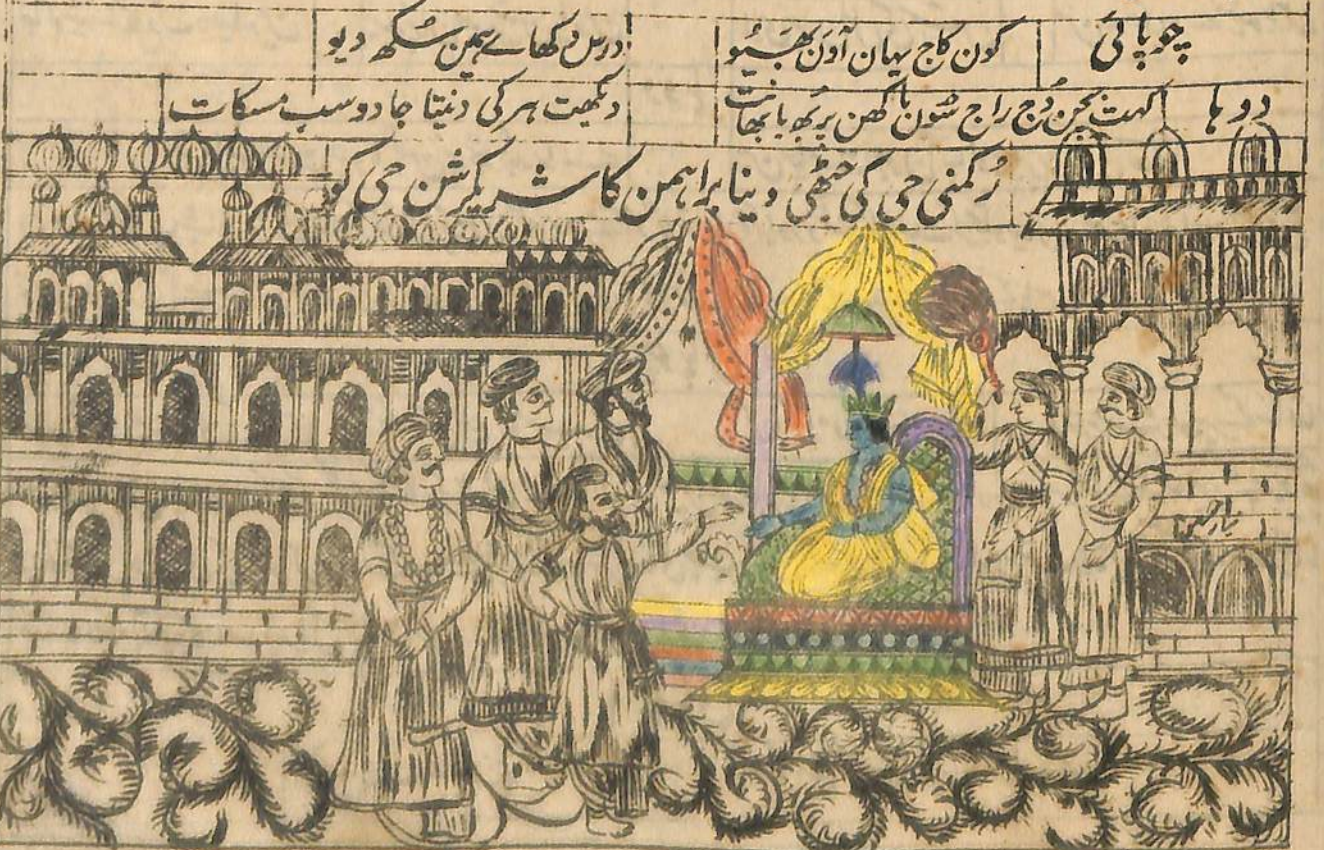 چوپائی کون کاج یہان آون بھیو درس دکھاے ہمین سکھ دیو
دوہا کہت بچن دُج راج سون یا پربھو بھانت دیکھت ہر کی دنیتا جادو سب مسکات
رُکمنی جی کی چٹھی دینا براہمن کا سریکرشن جی کو